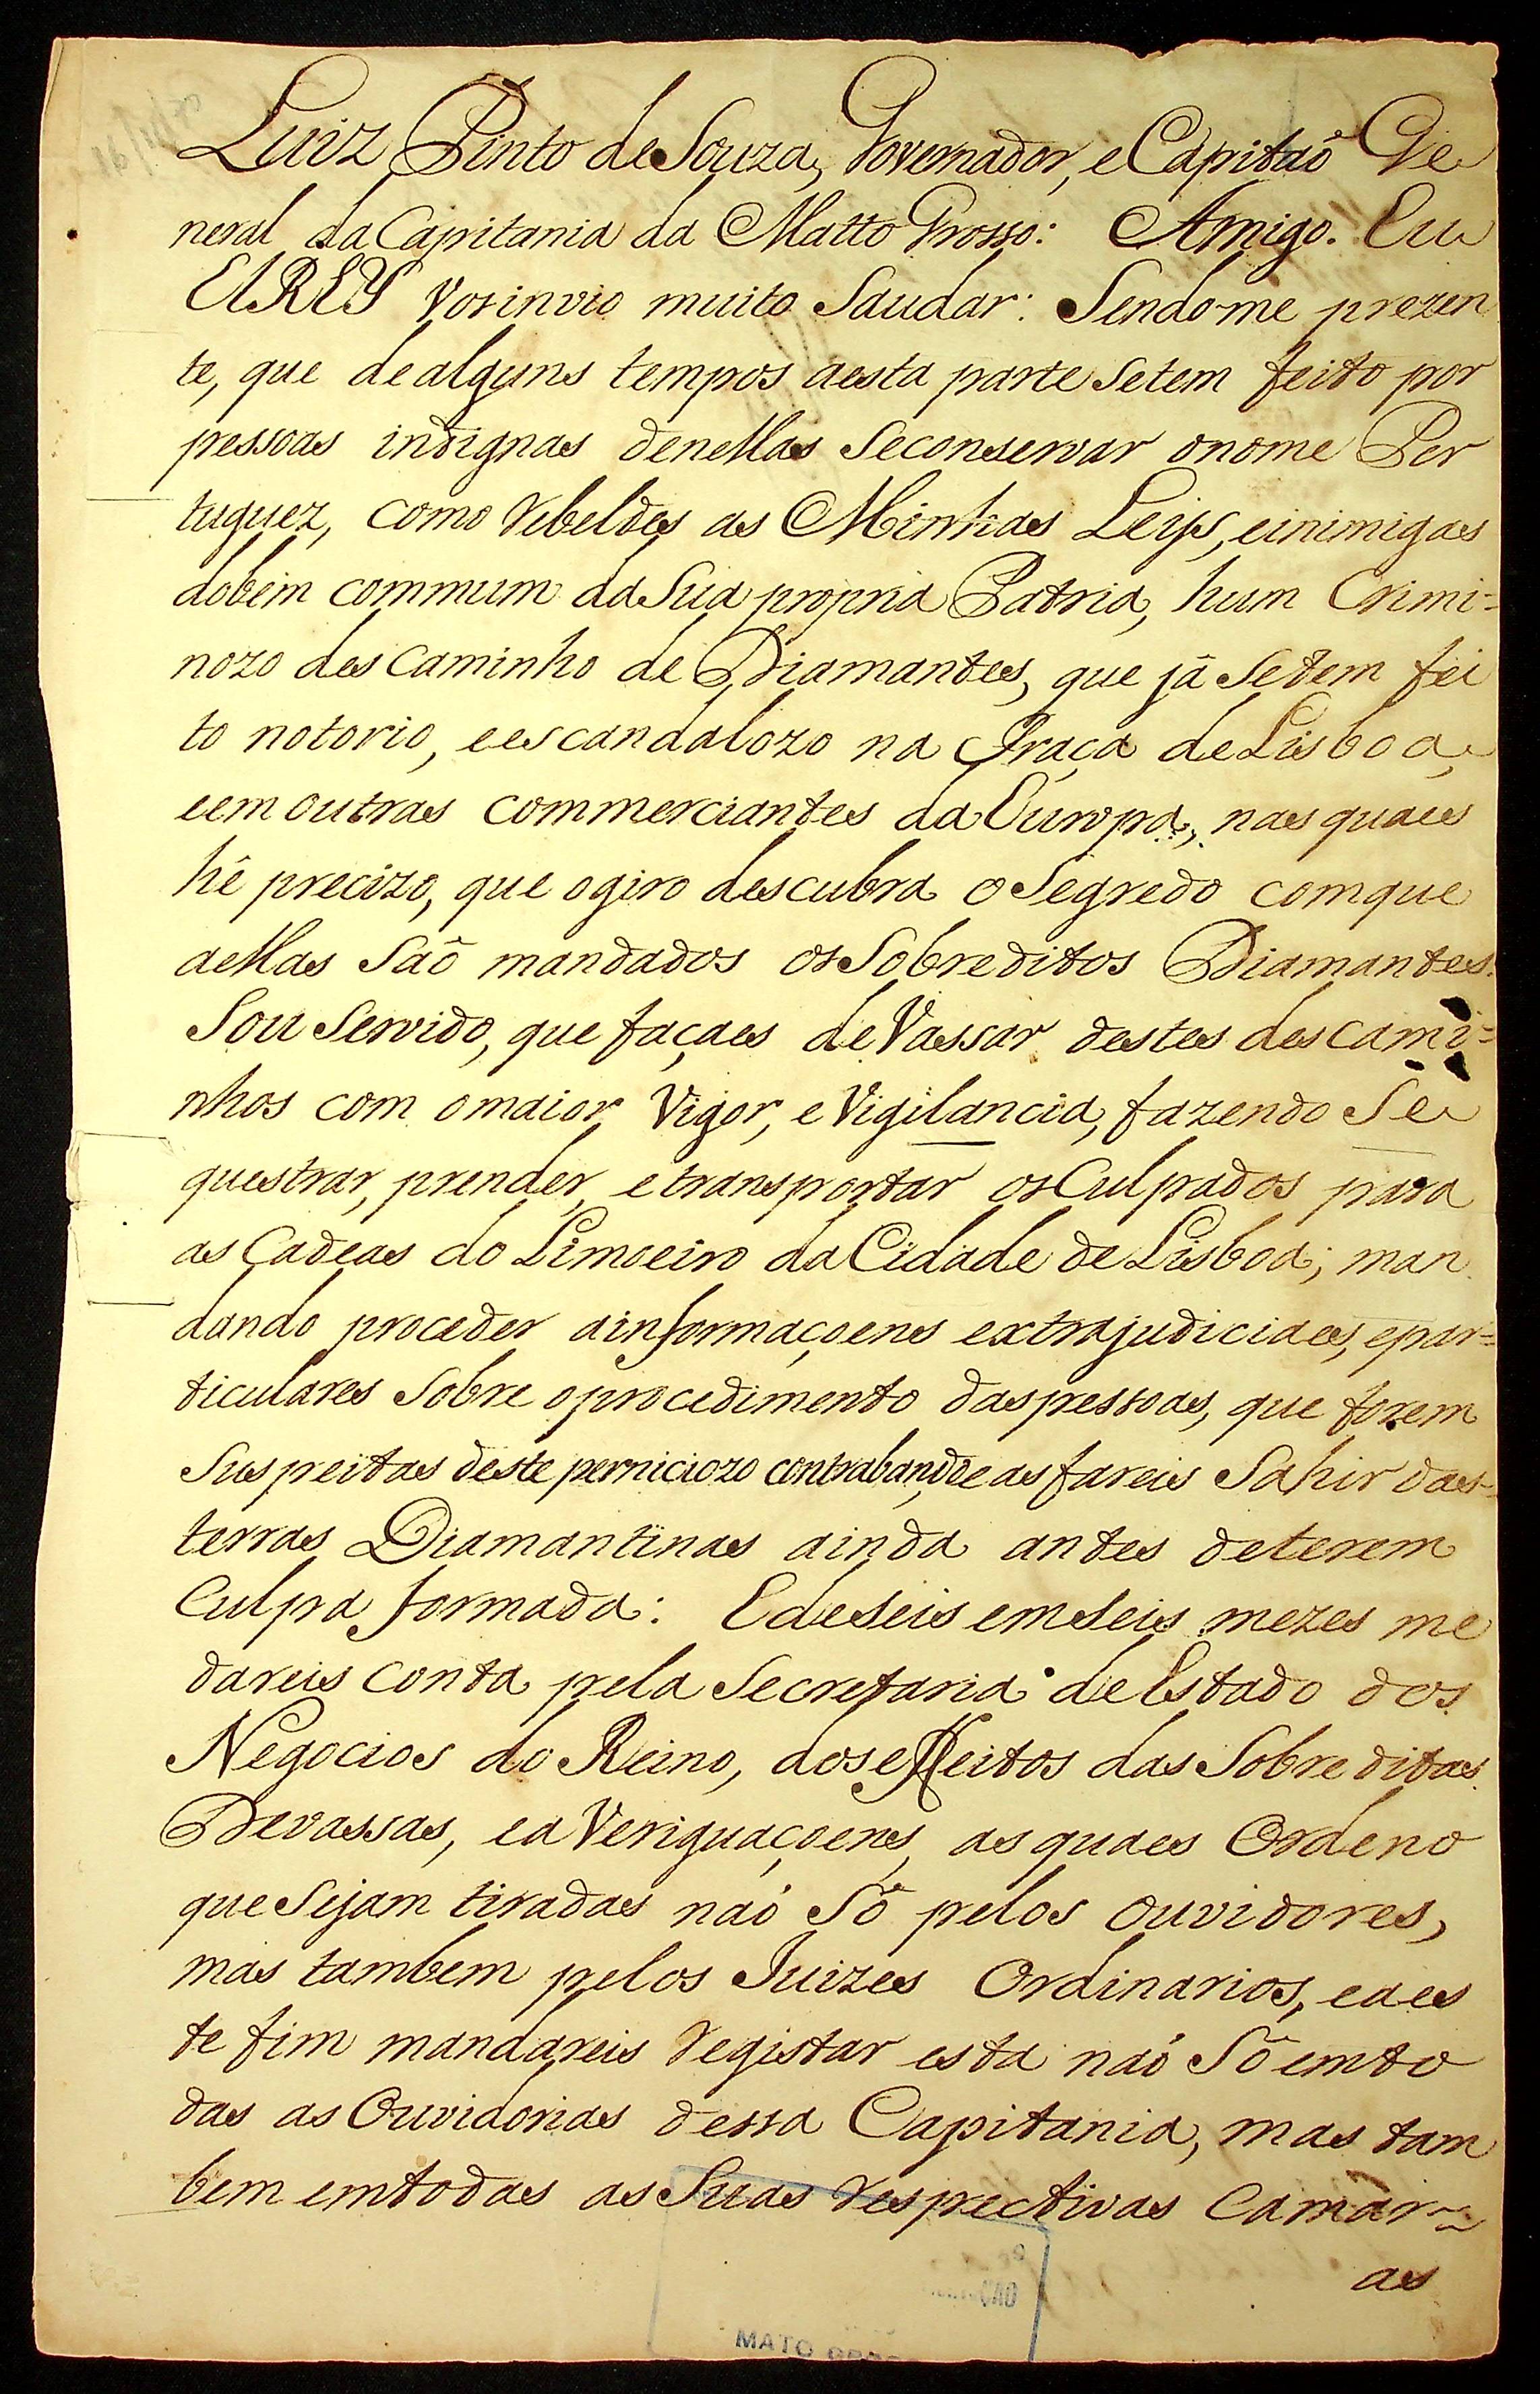 Luiz Pinto de Souza, Governador, e Capitaõ Ge
neral da Capitania da Matto Grosso: Amigo. Eu
ElREY vos invio muito Saudar: Sendo-me prezen
te, que de alguns tempos aesta parte Setem feito por
pessoas indignas denellas Seconservar onome Por
tuguez, como rebeldes as Minhas Leys, einimigas
dobem commum da Sua propria Patria, hum Crimi-
nozo descaminho de Diamantes, que já Setem fei
to notorio, eescandalozo na Praça de Lisboa,
eem outras commerciantes da Europa, nas quaes
hê precizo, que ogiro descubra o Segredo comque
aellas Saõ mandados os Sobreditos Diamantes.
Sou Servido, que façaes deVassar destes descami-
nhos com omaior Vigor, e Vigilancia, fazendo Se
questrar, prender, etransportar os Culpados para
as Cadeas do Limoeiro da Cidade de Lisboa; man
dando proceder ainformaçoens extrajudiciaes, epar-
ticulares Sobre oprocedimento daspessoas, que forem
Suspeitas deste perniciozo contrabando, e as fareis Sahir das
terras Diamantinas ainda antes deterem
Culpa formada: Edeseis emseis mezes me
dareis conta pela Secretaria de Estado dos
Negocios do Reino, dos effeitos das Sobreditas
Devassas, eaVeriguaçoens, as quaes Ordeno
que Sejam tiradas naõ Sô pelos Ouvidores,
mas tambem pelos Juizes Ordinarios, eaes
te fim mandareis registar esta naõ Sô emto
das as Ouvidorias dessa Capitania, mas tam
bem emtodas as Suas respectivas Camar-
as
MATO